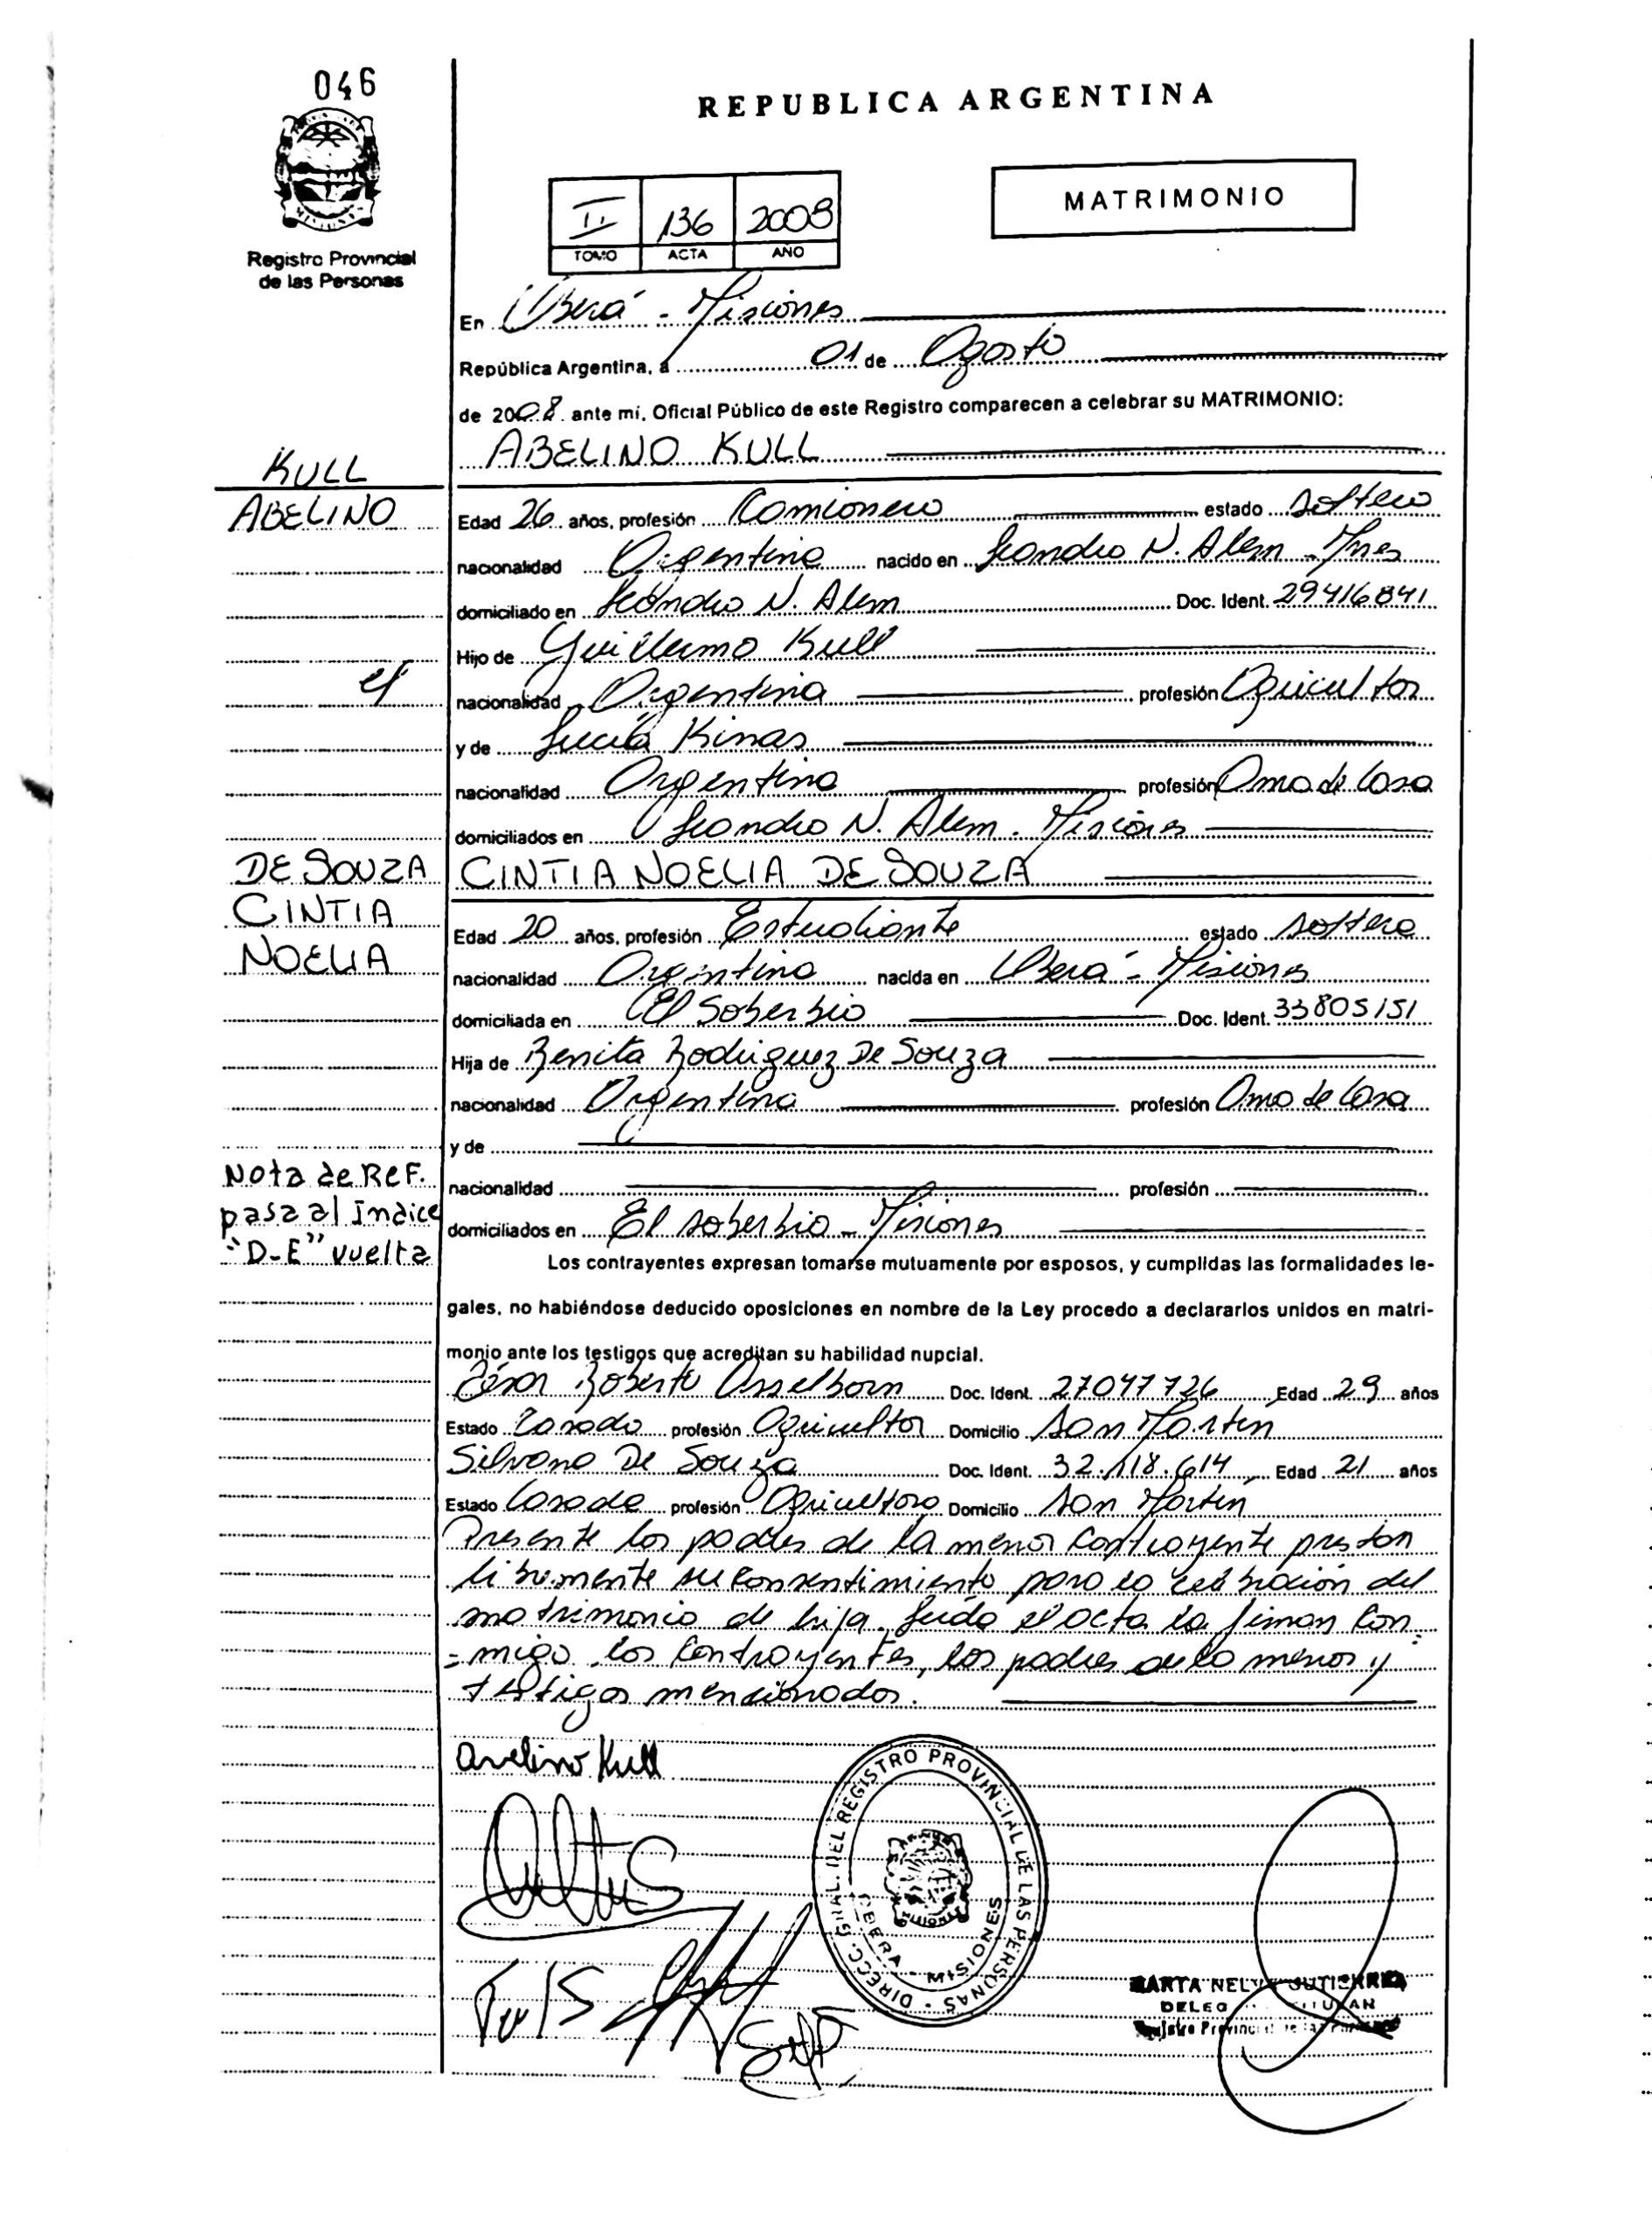 046
REPUBLICA ARGENTINA
MATRIMONIO
II 136 2008
TOMO ACTA AÑO
Registro Provincial
de las Personas
En Oberá - Misiones
República Argentina, a 01 de Agosto
de 2008 ante mí, Oficial Público de este Registro comparecen a celebrar su MATRIMONIO:
ABELINO KULL
KULL
ABELINO
Edad 26 años, profesión Camionero estado soltero
nacionalidad Argentina nacido en Leandro N. Alem - Mnes
domiciliado en Leandro N. Alem Doc. Ident. 29416841
Hijo de Guillermo Kull
nacionalidad Argentina profesión Agricultor
y de Lucía Kinas
nacionalidad Argentina profesión Ama de Casa
domiciliados en Leandro N. Alem - Misiones
DE SOUZA
CINTIA
NOELIA
CINTIA NOELIA DE SOUZA
Edad 20 años, profesión Estudiante estado soltera
nacionalidad Argentina nacida en Oberá - Misiones
domiciliada en El Soberbio Doc. Ident. 33805151
Hija de Benita Rodriguez De Souza
nacionalidad Argentina profesión Ama de Casa
y de
nacionalidad profesión
domiciliados en El soberbio - Misiones
Nota de Ref.
pasa al Indice
"D-E" vuelta
Los contrayentes expresan tomarse mutuamente por esposos, y cumplidas las formalidades le-
gales, no habiéndose deducido oposiciones en nombre de la Ley procedo a declararlos unidos en matri-
monio ante los testigos que acreditan su habilidad nupcial.
César Roberto Asselborn Doc. Ident. 27047726 Edad 29 años
Estado Casado profesión Agricultor Domicilio San Martin
Silvana De Souza Doc. Ident. 32.118.614 Edad 21 años
Estado Casada profesión Agricultora Domicilio San Martin
Presente los padres de la menor contrayente prestan
libremente su consentimiento para la celebración del
matrimonio de hija. Leída el acta la firman con
=migo los contrayentes, los padres de la menor y
testigos mencionados.
Avelino Kull
DIRECC. GRAL. DEL REGISTRO PROVINCIAL DE LAS PERSONAS
OBERA - MISIONES
MARTA NELY GUTIERREZ
Registro Provincial de las Personas